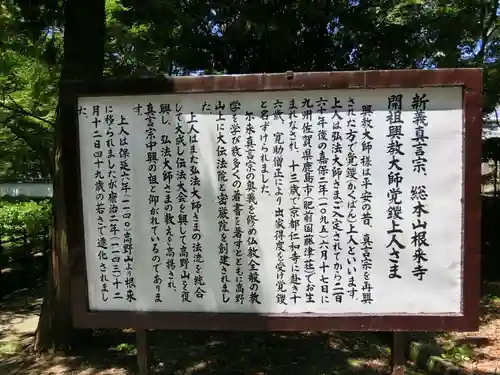 新義真言宗、総本山根来寺
開祖興教大師覚鑁上人さま
興教大師様は平安の昔、真言宗を再興
された方で覚鑁(かくばん)上人といいます。
上人は弘法大師さまがご入定されてから二百
六十年後の嘉保二年(一〇九五)六月十七日に
九州佐賀県鹿島市(肥前国藤津荘)でお生
まれなされ、十三歳で京都仁和寺に赴き十
六歳、寛助僧正により出家得度を受け覚鑁
と名ずけられました。
尓来真言宗の奥義を修め仏教全般の教
学を学び数多くの著書を著すとともに高野
山上に大伝法院と密厳院を創建されまし
た。
上人はまた弘法大師さまの法流を統合
して大成し伝法大会を興して高野山を復
興し、弘法大師さまの教えを高揚され、
真言宗中興の祖と仰がれているのでありま
す。
上人は保延六年(一一四〇)高野山より根来
に移られましたが康治二年(一一四三)十二
月十二日四十九歳の若さで遷化されまし
た。